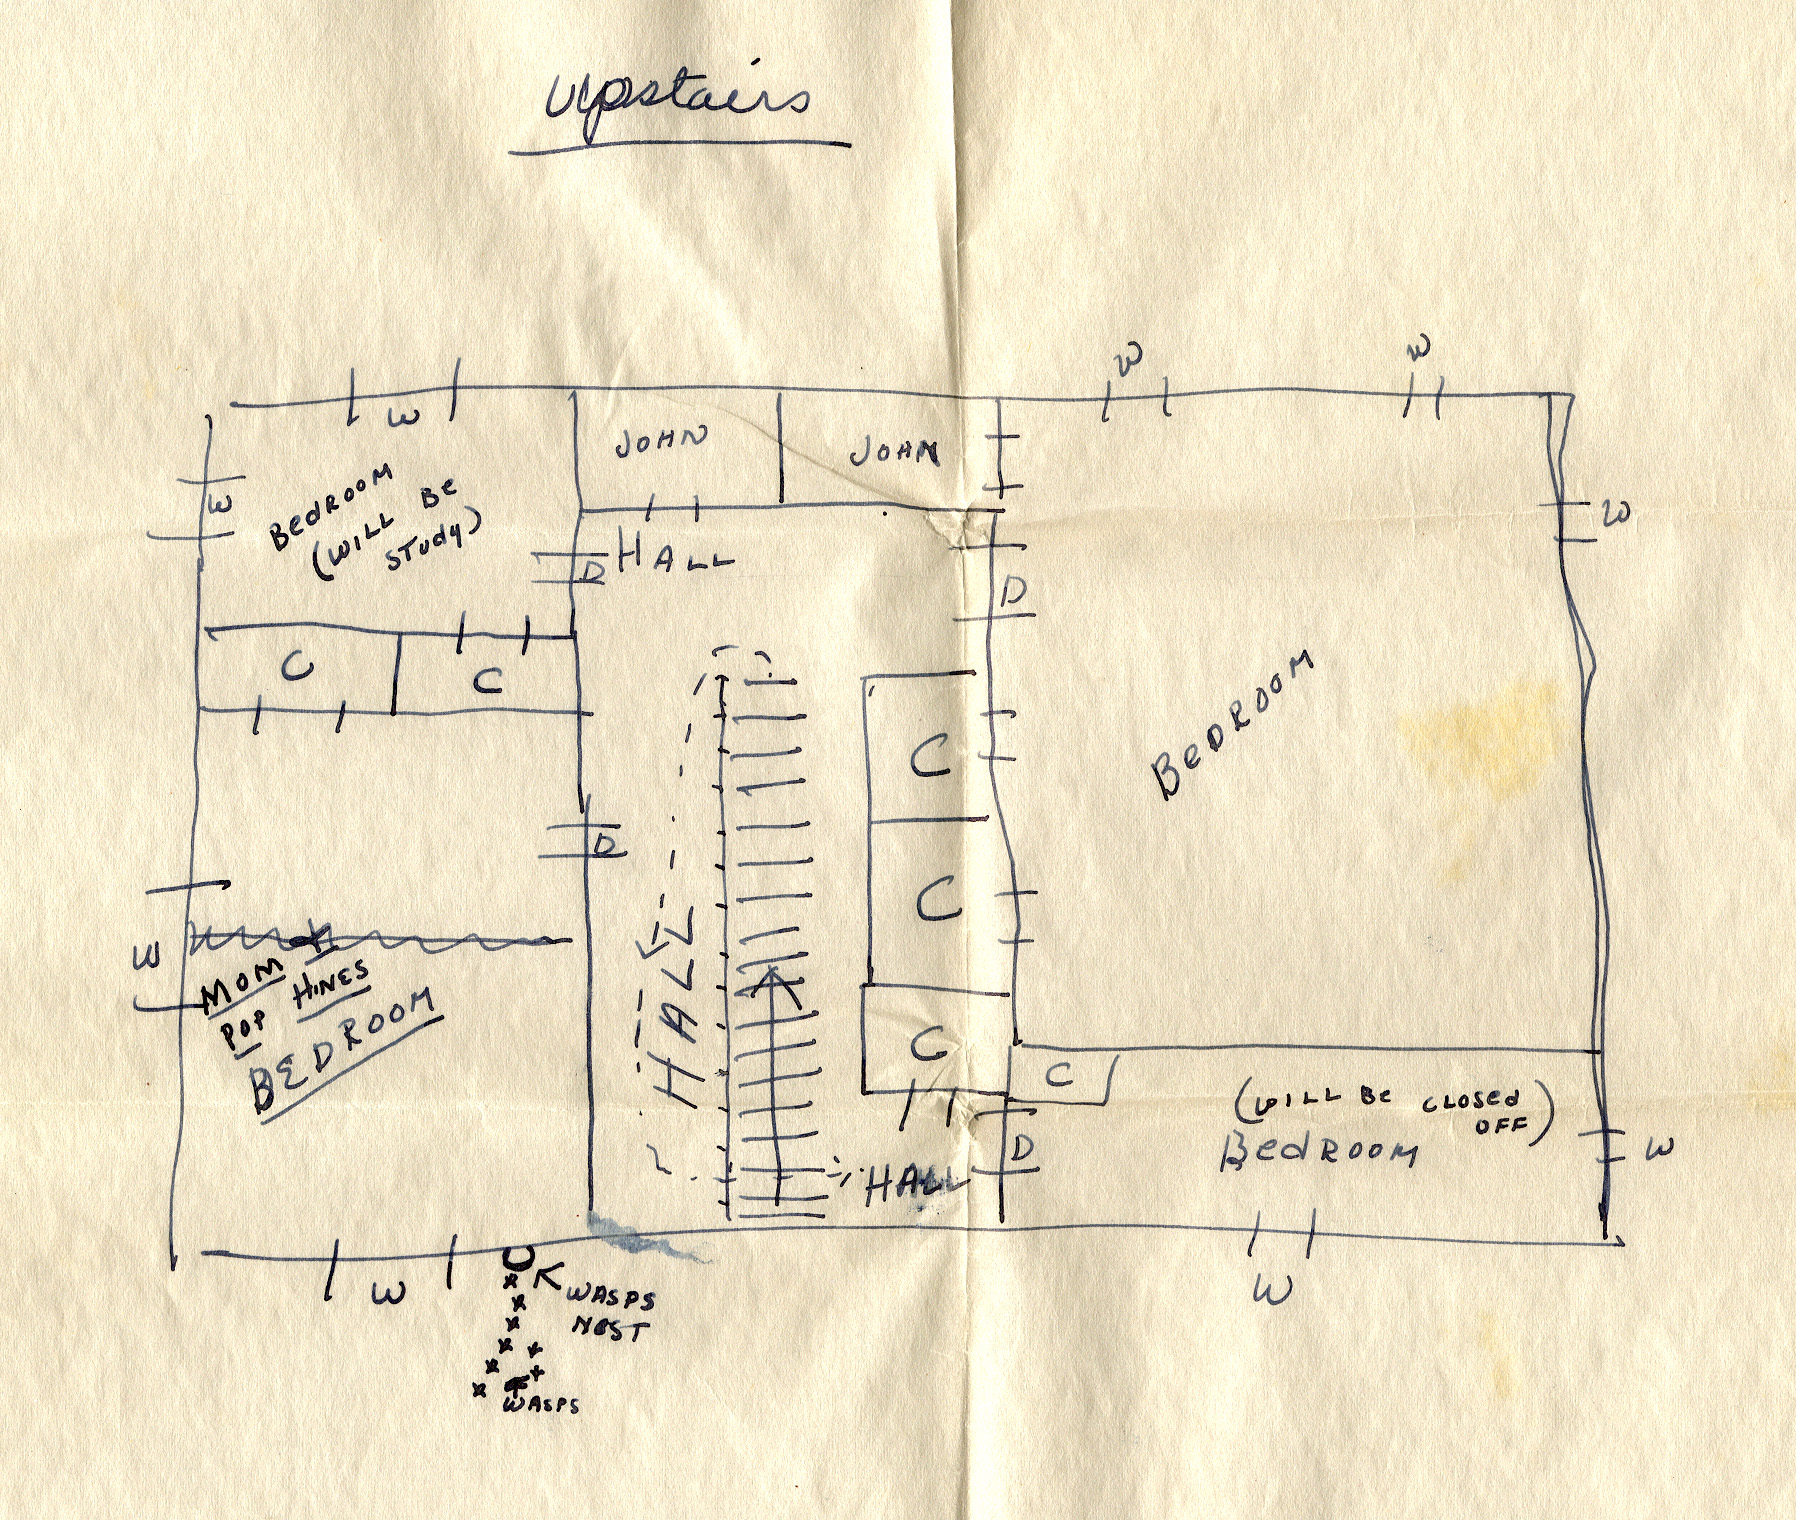 Upstairs
W
W
W
W
BEDROOM
(WILL BE
STUDY)
JOHN
JOHN
W
D
HALL
D
C
C
C
BEDROOM
D
C
W
MOM
POP HINES
BEDROOM
HALL
C
C
(WILL BE CLOSED
OFF)
BEDROOM
D
HALL
W
W
W
WASPS
NEST
WASPS